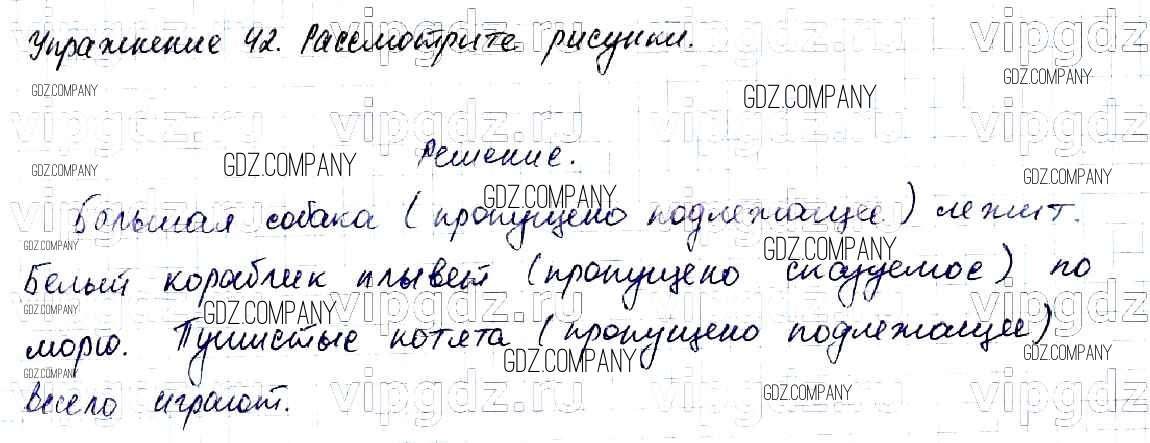 Упражнение 42. Рассмотрите рисунки.
Решение.
Большая собака (пропущено подлежащее) лежит.
Белый кораблик плывет (пропущено сказуемое) по
морю. Пушистые котята (пропущено подлежащее)
весело играют.
vipgdz.ru
GDZ.COMPANY